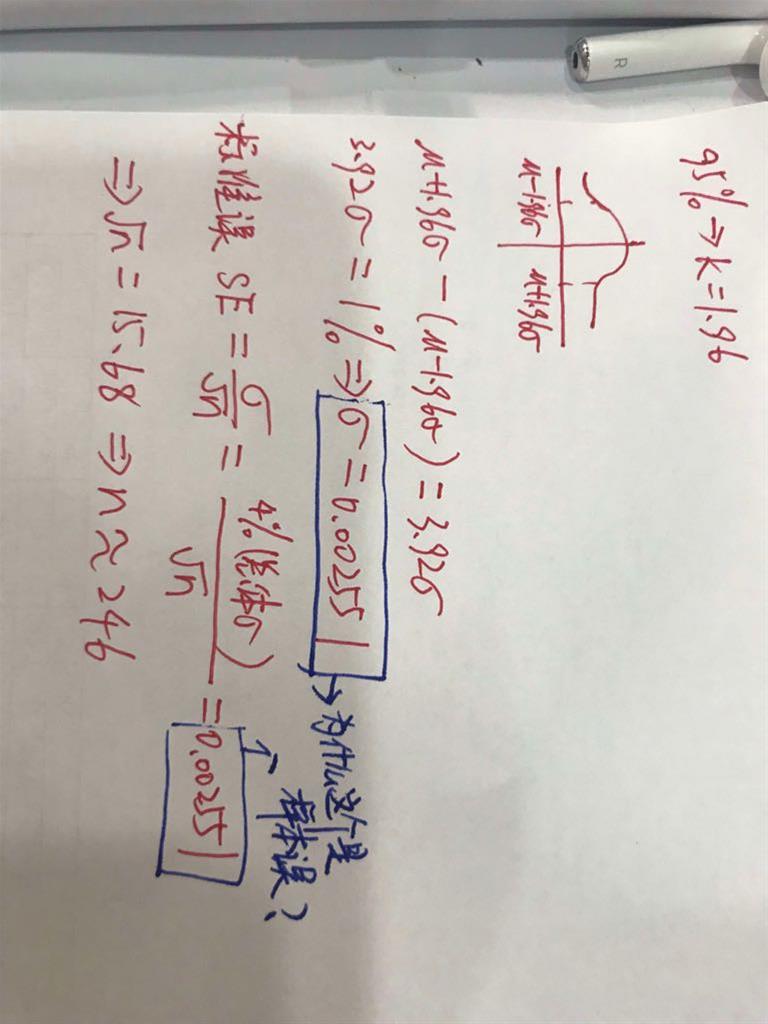 R
95% ⇒ k = 1.96
μ-1.96σ μ+1.96σ
μ+1.96σ - (μ-1.96σ) = 3.92σ
3.92σ = 1% ⇒ σ = 0.002551
→ 为什么这个是样本误？
标准误 SE = σ/√n = 4%(总体σ)/√n = 0.002551
⇒ √n = 15.68 ⇒ n ≈ 246